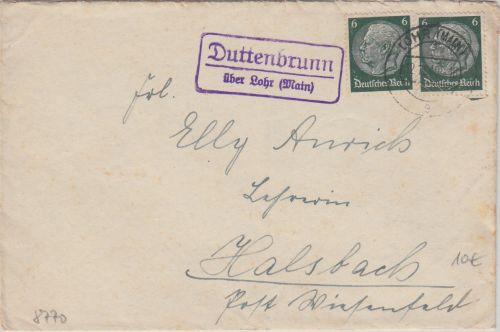 6 6
Deutsches Reich Deutsches Reich
LOHR (MAIN)
Duttenbrunn
über Lohr (Main)
Frl.
Elly Anrich
Lehrerin
Halsbach
10€
Post Wiesenfeld
8770